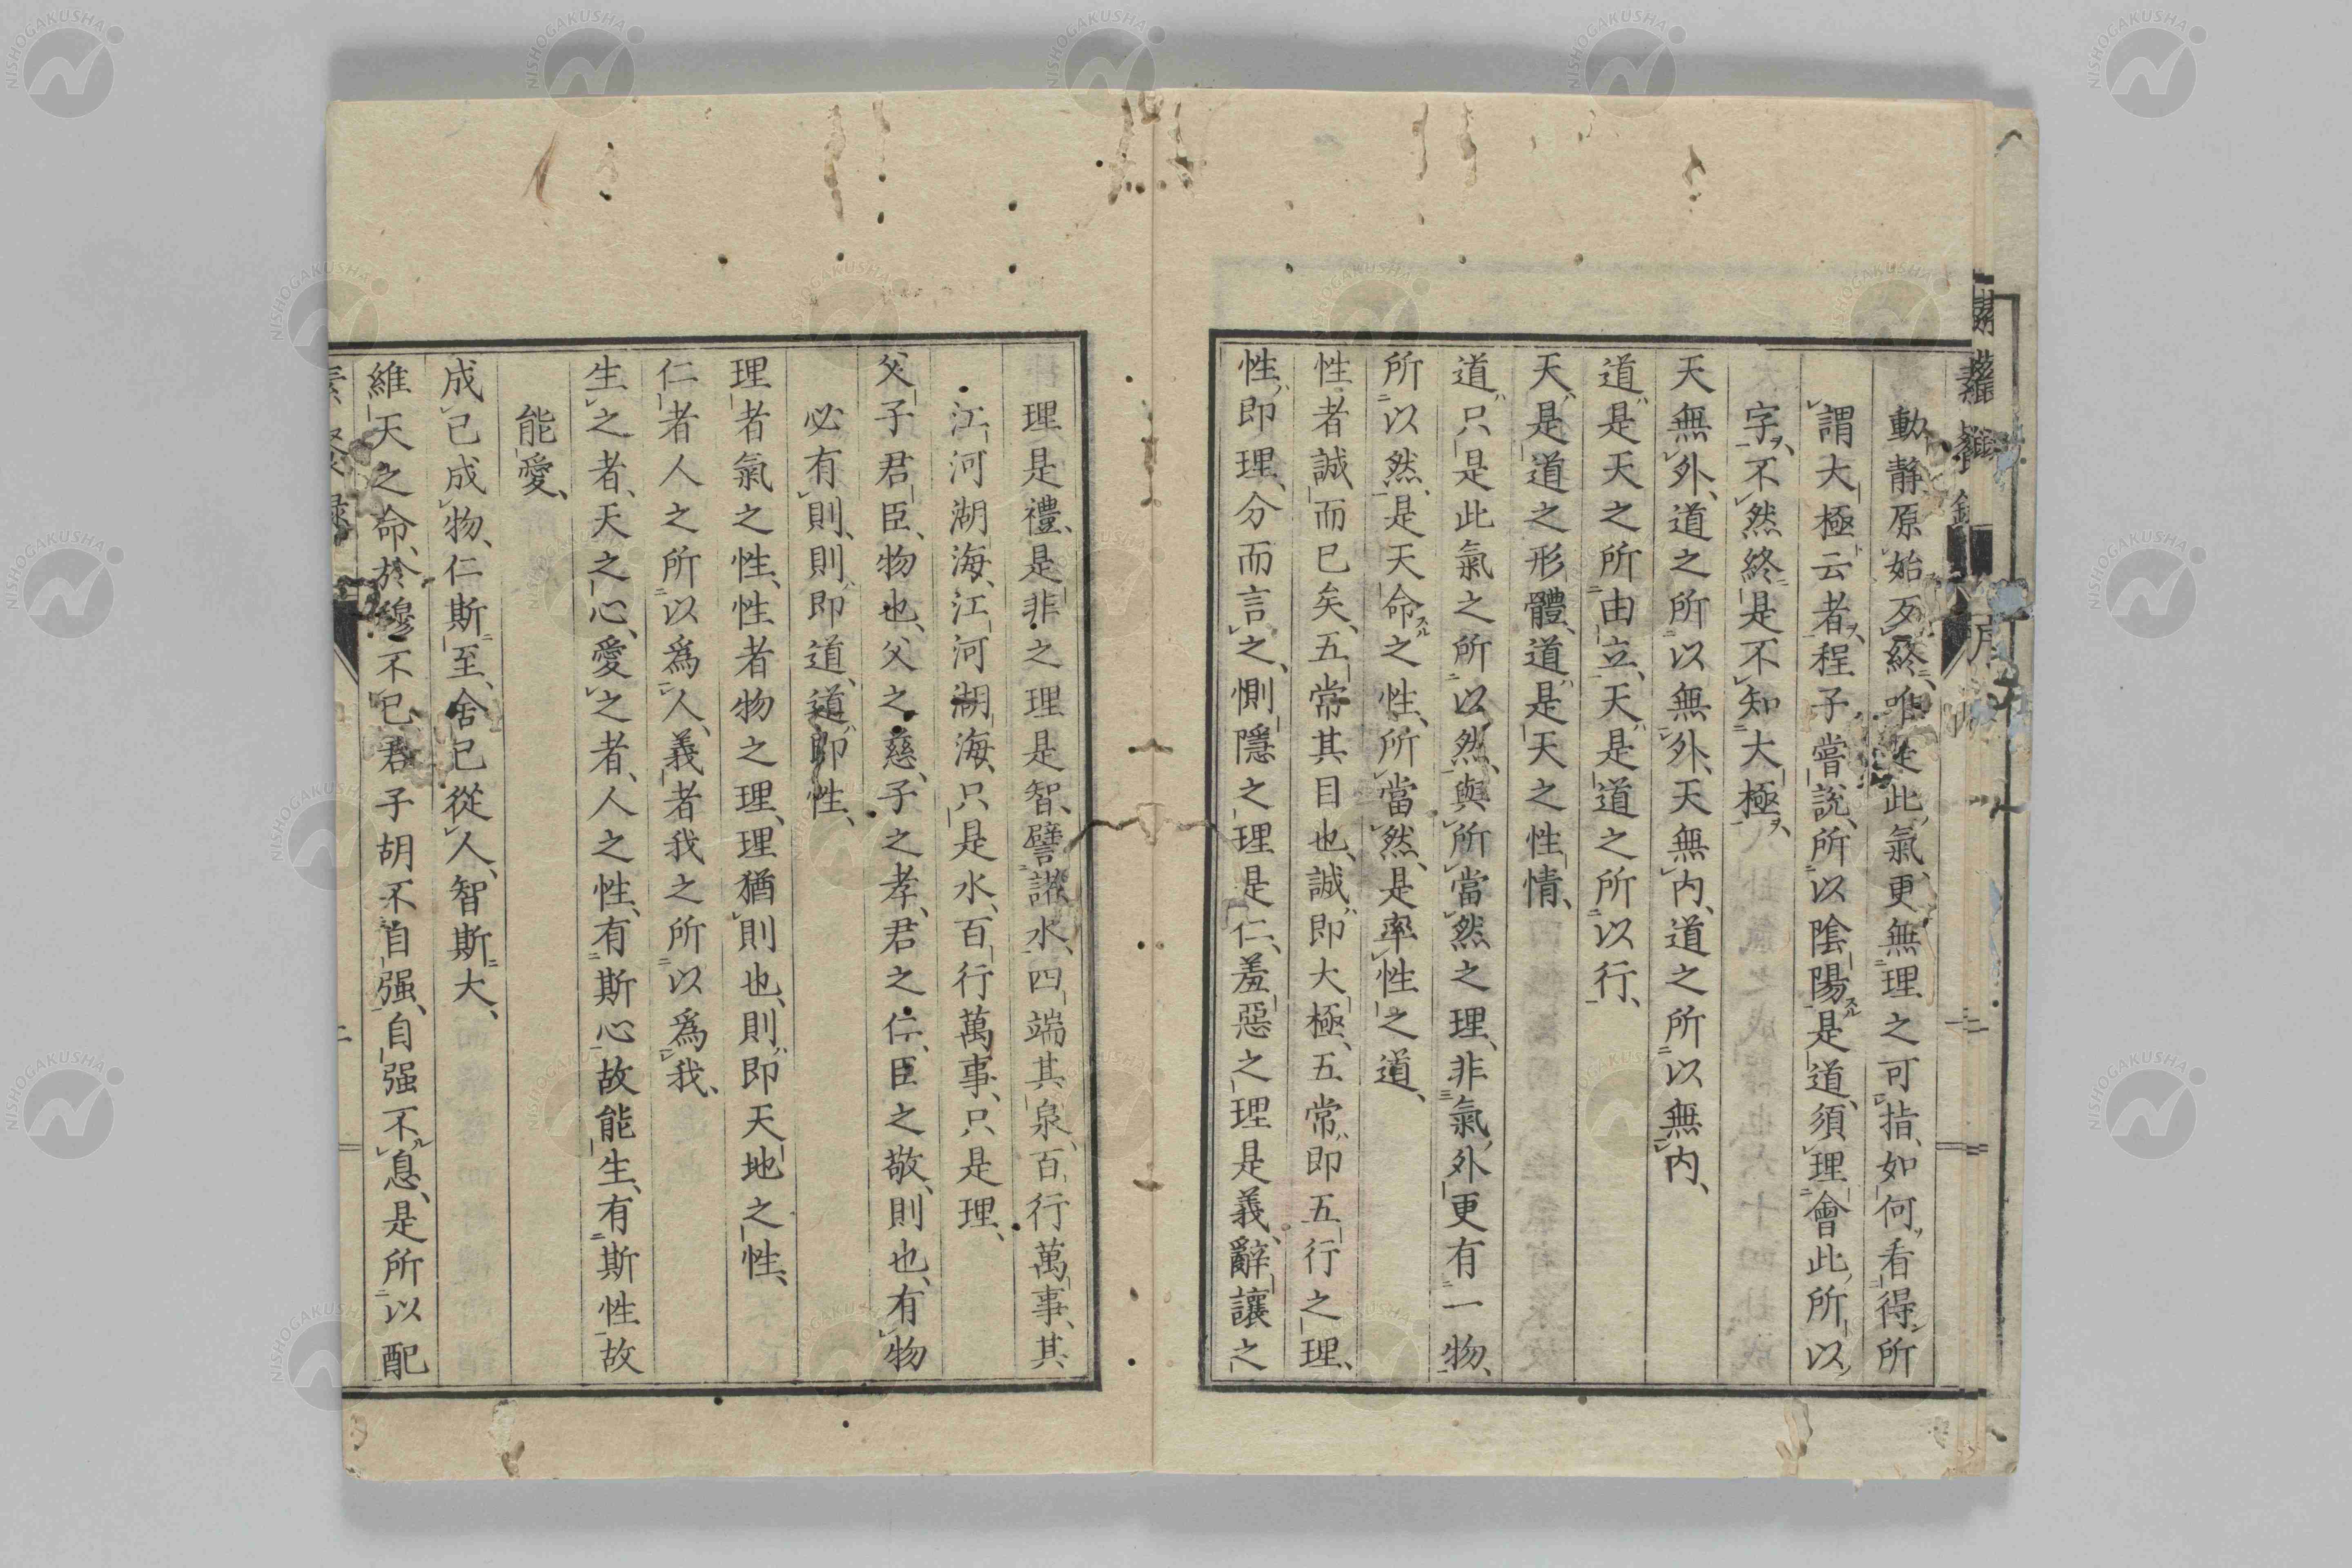 動靜原始反終唯是此氣更無理之可指如何看得所
謂大極云者程子嘗說所以陰陽是道須理會此所以
字不然終是不知大極
天無外道之所以無外天無內道之所以無內
道是天之所由立天是道之所以行
天是道之形體道是天之性情
道只是此氣之所以然與所當然之理非氣外更有一物
所以然是天命之性所當然是率性之道
性者誠而已矣五常其目也誠即大極五常即五行之理
性即理分而言之惻隱之理是仁羞惡之理是義辭讓之
理是禮是非之理是智譬諸水四端其泉百行萬事其
江河湖海江河湖海只是水百行萬事只是理
父子君臣物也父之慈子之孝君之仁臣之敬則也有物
必有則則即道道即性
理者氣之性性者物之理理猶則也則即天地之性
仁者人之所以為人義者我之所以為我
生之者天之心愛之者人之性有斯心故能生有斯性故
能愛
成己成物仁斯至舍己從人智斯大
維天之命於穆不已君子胡不自强自强不息是所以配
NISHOGAKUSHA